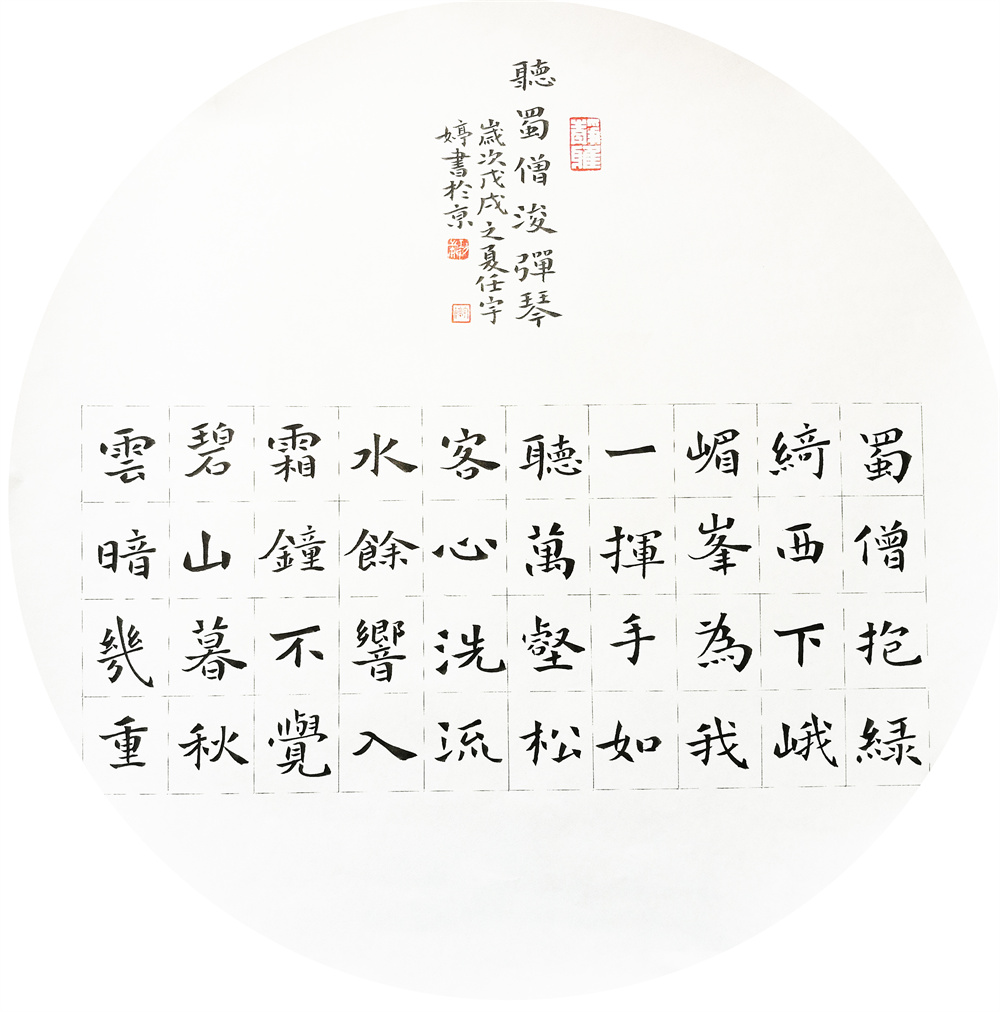 聽蜀僧浚彈琴
歲次戊戌之夏任宇
婷書於京
蜀僧抱綠
綺西下峨
嵋峯為我
一揮手如
聽萬壑松
客心洗流
水餘響入
霜鐘不覺
碧山暮秋
雲暗幾重